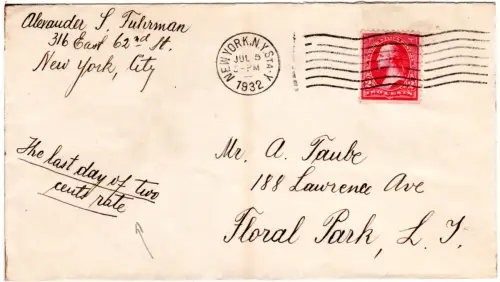 Alexander S. Fuhrman
316 East 62nd St.
New York, City
NEW YORK, N.Y. STA. Y
JUL 5
-PM
1932
TWO CENTS
The last day of two
cents rate
Mr. A. Taube
188 Lawrence Ave
Floral Park, L. I.